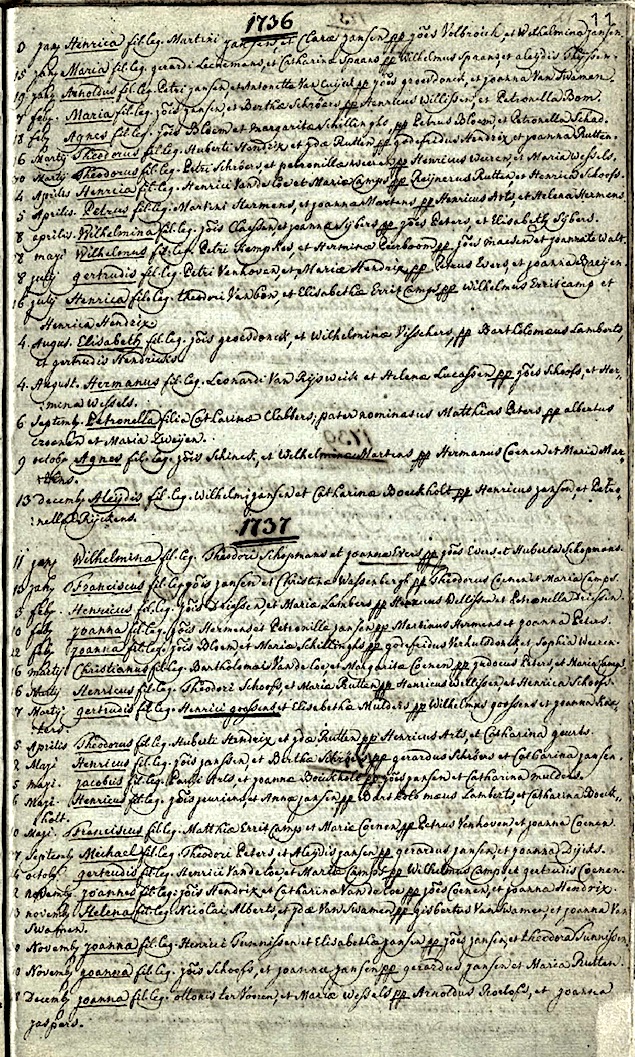 11
1736
jan Henrica fil. leg. Martini jansen, et Claræ jansen pp joës Volbroich, et Wilhelmina jansen
15 jany Maria fil. leg. gerardi Leenemans, et Catharina Spaans pp Wilhelmus Spaans et aleydis Thyssen
19 jany Arnoldus fil. leg. Petri jansen et Antonetta Van Cuijck pp joës groesdonck, et joanna Van Swamen.
feby. Maria fil. leg. joïs jansen et Bertha Schröers pp Henricus Willissen, et Petronella Bom.
18 feby Agnes fil. leg. joïs Bloem et margarita Schillinghs, pp Petrus Bloem et Petronella Schad.
16 Marty Theodorus fil. leg. Huberti Hendrix et jda Rutten pp godefridus Hendrix et joanna Rutten.
20 Marty Theodorus fil. leg. Petri Schröers et petronilla pp Henricus et Maria Wessels.
4 Aprilis Henricia fil. leg. Henrici Van de Loe et Maria Camps pp Reijnerus Rutten et Henrica Schoofs.
5 Aprilis. Petrus fil. leg. Martini Hermens, et joanna Martens pp Henricus Arts, et Helena Hermens
8 aprilis. Wilhelmina fil. leg. joïs Claessen et joanna Sijbers pp joës Peters, et Elisabeth Sijbers.
8 maji Wilhelmus fil. leg. Petri Kempkes et Hermina Peerboom pp joës maesen et joanna te Walt.
8 july gertrudis fil. leg. Petri Venhoven, et Maria Hendrix pp Petrus Evers, et joanna
16 july Henrica fil. leg. theodori Van Bon, et Elisabetha Erritcamp pp Wilhelmus Erritcamp et
Henrica Hendrix
4. Augus. Elisabeth fil. leg. joïs groesdonck, et Wilhelmina Visschers, pp Bartholomæus Lamberts,
et gertrudis Hendricks.
4. August. Hermanus fil. leg. Leonardi Van Rijswick et Helena Lucassen pp joës Schoofs, et Her-
mina Wessels.
6 Septemb. Petronella filia Catharinæ Clabbers; pater nominatus Matthias Peters pp albertus
Croenen et Maria
9 octobr Agnes fil. leg. joïs Schinck, et Wilhelminæ Martens pp Hermanus Coenen et Maria Mar-
tens.
13 decemb Aleydis fil. leg. Wilhelmi jansen, et Catharinæ Boeckholt pp Henricus jansen, et Petro-
nella Rijckens.
1737
11 jany Wilhelmina fil. leg. Theodori Schopmans et joanna Evers pp joës Evers et Huberta Schopmans.
jany Franciscus fil. leg. joïs jansen et Christina Wassenbergh pp Theodorus Coenen et Maria Camps.
feby. Henricus fil. leg. joïs Driessen, et Maria Lambers pp Henricus Willissen, et Petronella Driessen.
10 feby joanna fil. leg. joïs Hermens et Petronilla jansen pp Martinus Hermens et joanna Peters.
12 feby joanna fil. leg. joïs Bloem et Mariæ Schillinghs pp godefridus Verhulsdonck et Sophia
16 marty Christianus fil. leg. Bartholomæi Van de Loe, et Margarita Coenen pp judocus Peters et Maria Camps
16 Marty Henricus fil. leg. Theodori Schoofs et Maria Rutten pp Henricus Willissen, et Henrica Schoofs.
7 Marty gertrudis fil. leg. Henrici goossens et Elisabetha Mulders pp Wilhelmus goossens et joanna
5 Aprilis Theodorus fil. leg. Huberti Hendrix et jda Rutten pp Henricus Arts, et Catharina geurts.
2 Maji Henricus fil. leg. joïs janssen, et Bertha Schröers pp gerardus Schröers et Catharina jansen.
5 maji. jacobus fil. leg. Pauli Arts, et joanna Boeckholt pp joïs jansen et Catharina mulders.
6 Maji. Henricus fil. leg. joïs jeurissen et Anna jansen pp Bartholomæus Lamberts, et Catharina Boeck-
holt.
Maji. Franciscus fil. leg. Matthiæ Erritcamp et Mariæ Coenen pp Petrus Venhoven, et joanna Coenen.
7 septemb Michael fil. leg. Theodori Peters et Aleydis jansen pp gerardus jansen et joanna Dijcks.
4 octobr gertrudis fil. leg. Henrici Van de Loe, et Maria Camps pp Wilhelmus Camps et gertrudis Coenen.
2 novemb joannes fil. leg. joïs Hendrix et Catharina Van de Loe pp joës Coenen, et joanna Hendrix.
13 novemb Helena fil. leg. Nicolai Alberts, et jdæ Van Swamen pp gisbertus Van Swamen, et joanna Van
Swamen.
Novemb joanna fil. leg. Henrici Tunnissen et Elisabetha jansen pp joës jansen, et theodora Tunnissen.
Novemb joanna fil. leg. joïs Schoofs, et joanna jansen pp gerardus jansen et Maria Rutten.
Decemb joanna fil. leg. ottonis ter Vooren, et Maria Wessels pp Arnoldus Roelofs, et joanna
jaspers.